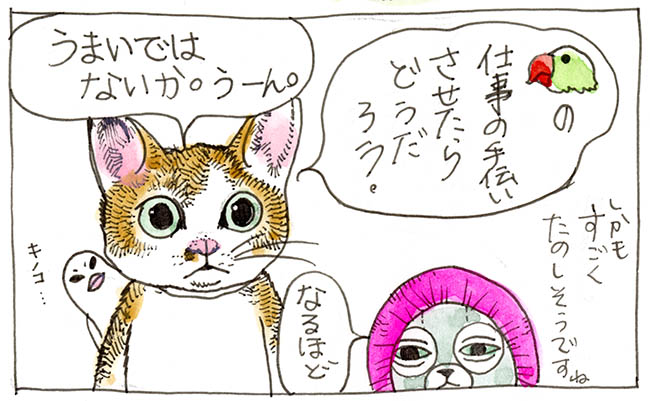 うまいでは
ないか。うーん。
の
仕事の手伝い
させたら
どうだ
ろう。
しかも
すごく
たのしそうですね
なるほど
キノコ…